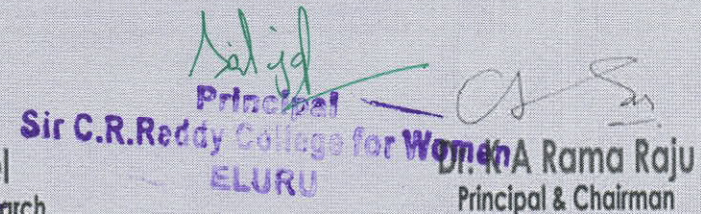 Principal
Sir C.R.Reddy College for Women
ELURU
Dr. K A Rama Raju
Principal & Chairman